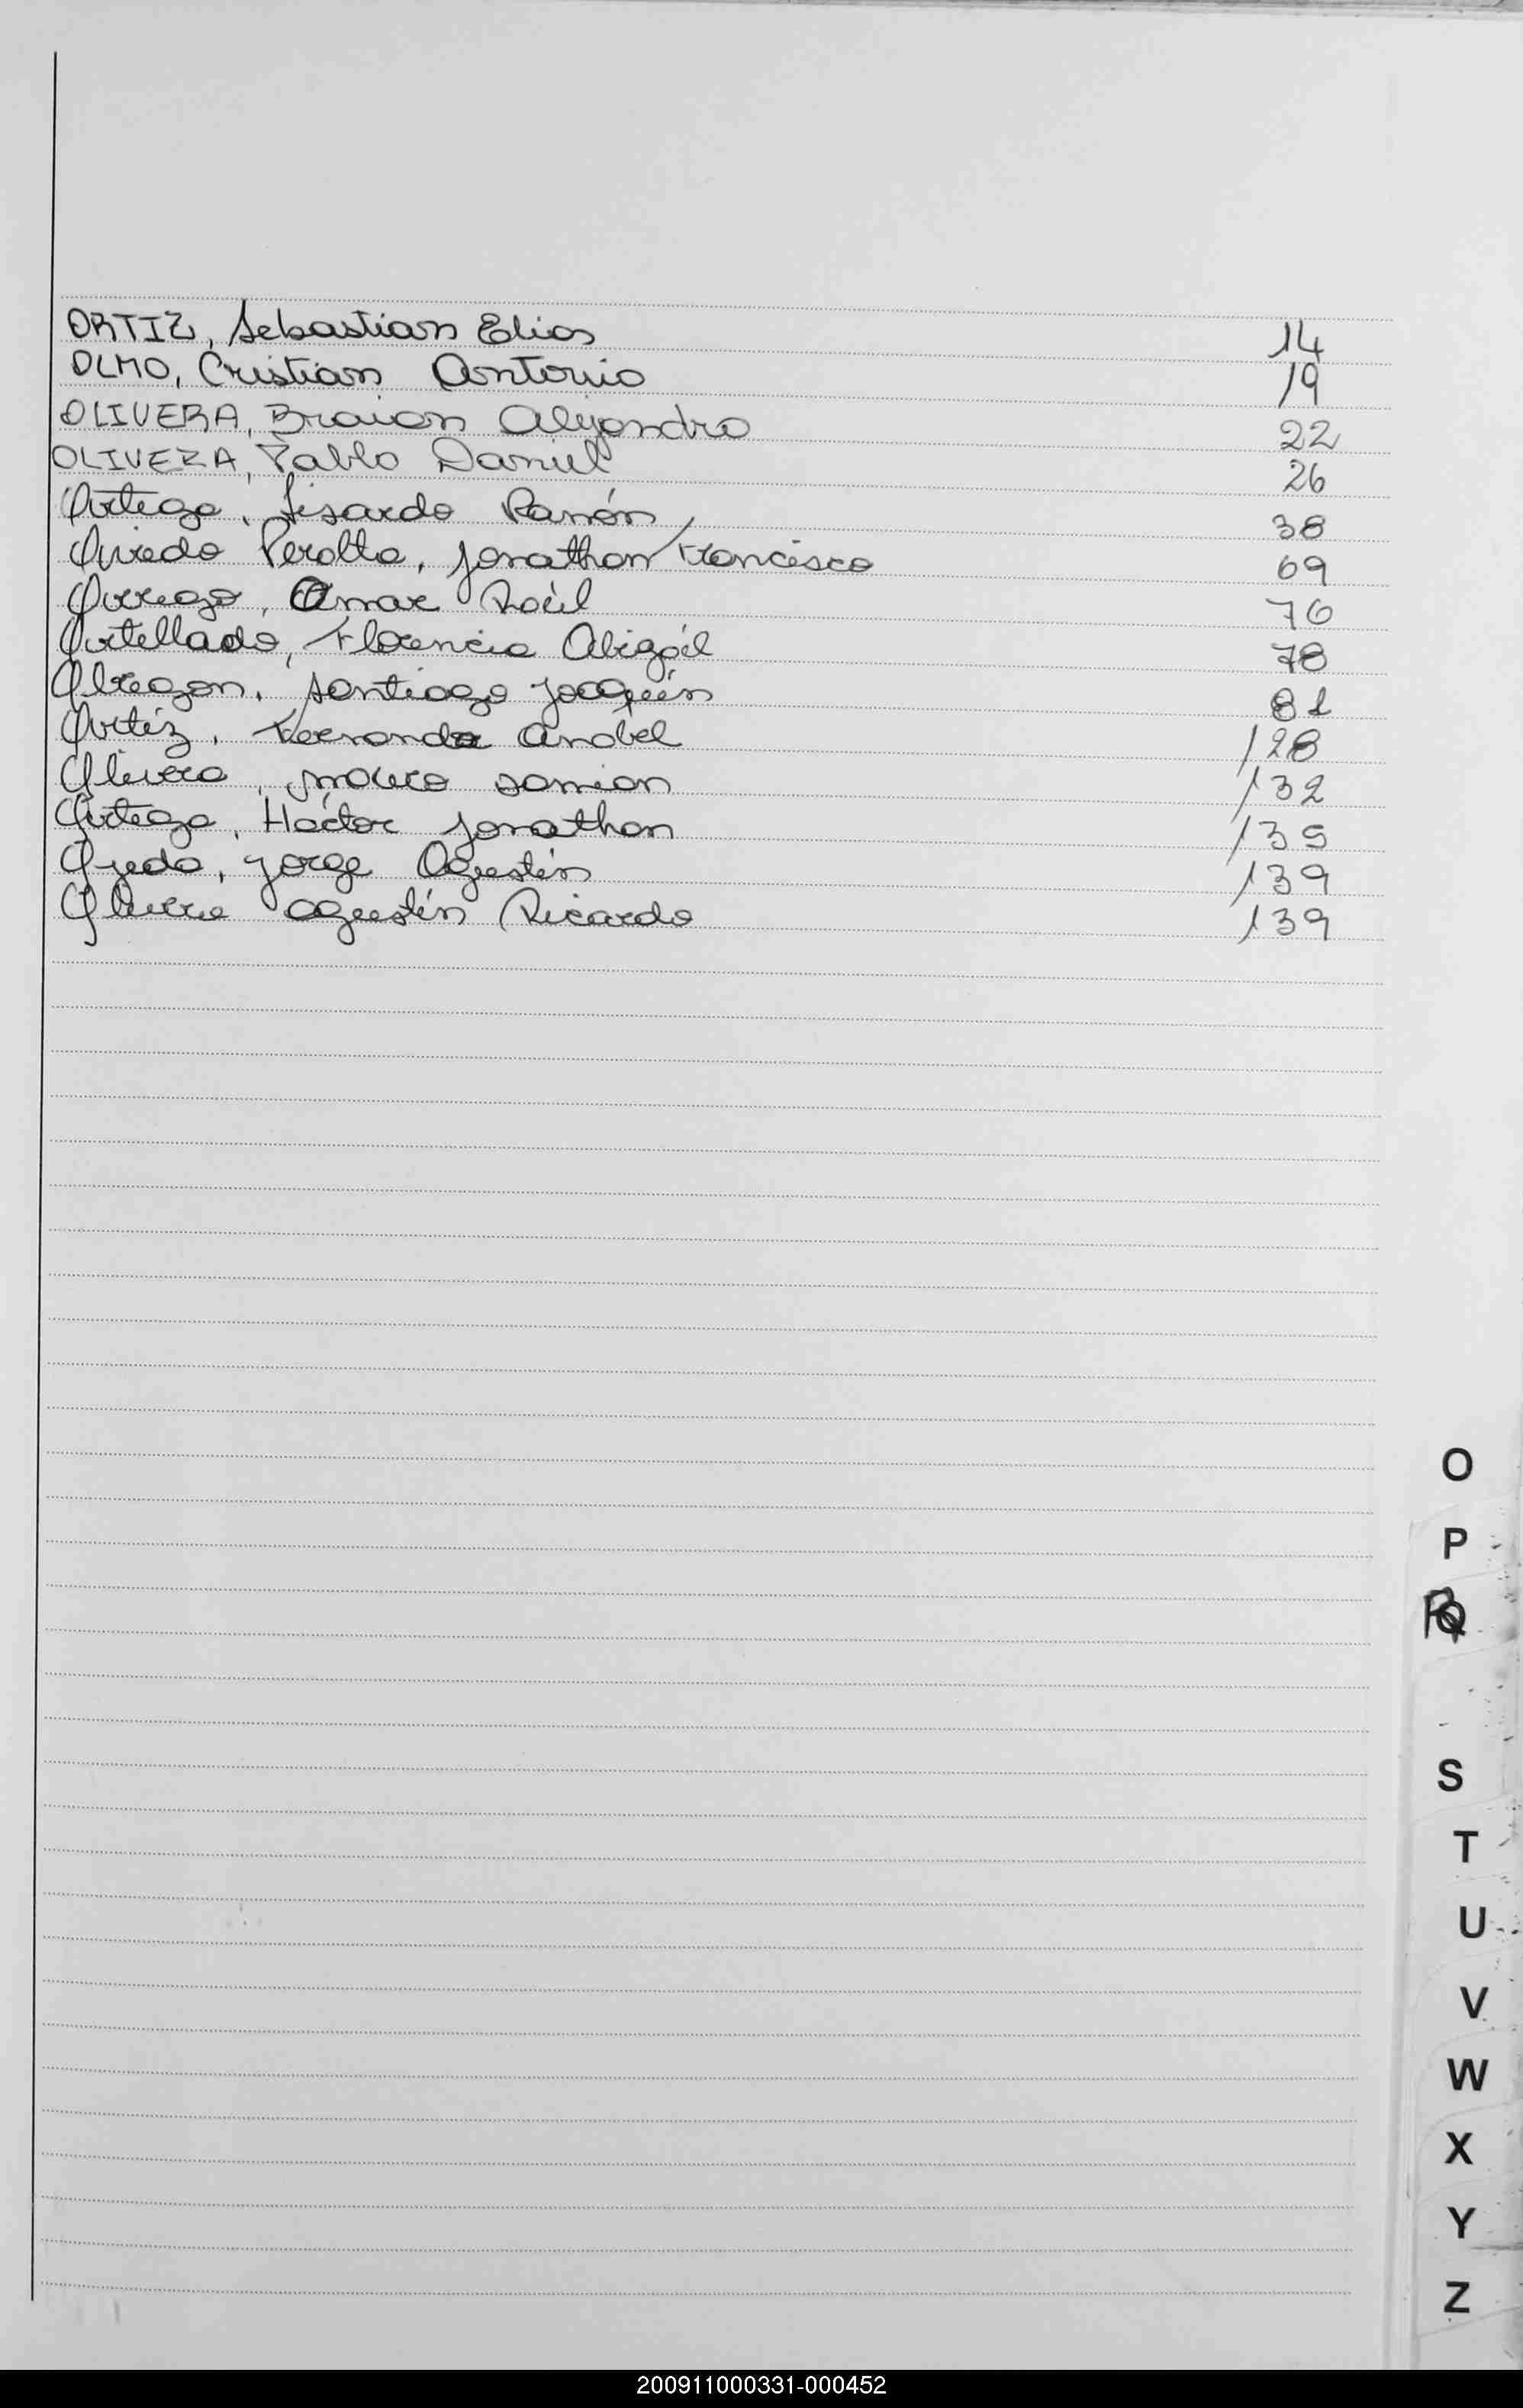 ORTIZ, Sebastian Elias 14
OLMO, Cristian Antonio 19
OLIVERA, Braian Alejandro 22
OLIVERA, Pablo Daniel 26
Ortega, Lisardo Ramón 38
Oviedo Peralta, Jonathan Francisco 69
Orrego, Omar Raúl 76
Ortellado, Florencia Abigail 78
Obregon, Santiago Joaquín 81
Ortíz, Fernanda Anabel 128
Olivera, Mauro Damian 132
Ortega, Héctor Jonathan 135
Ojeda, Jorge Agustín 139
Olivera Agustín Ricardo 139
O
P
Q
S
T
U
V
W
X
Y
Z
200911000331-000452